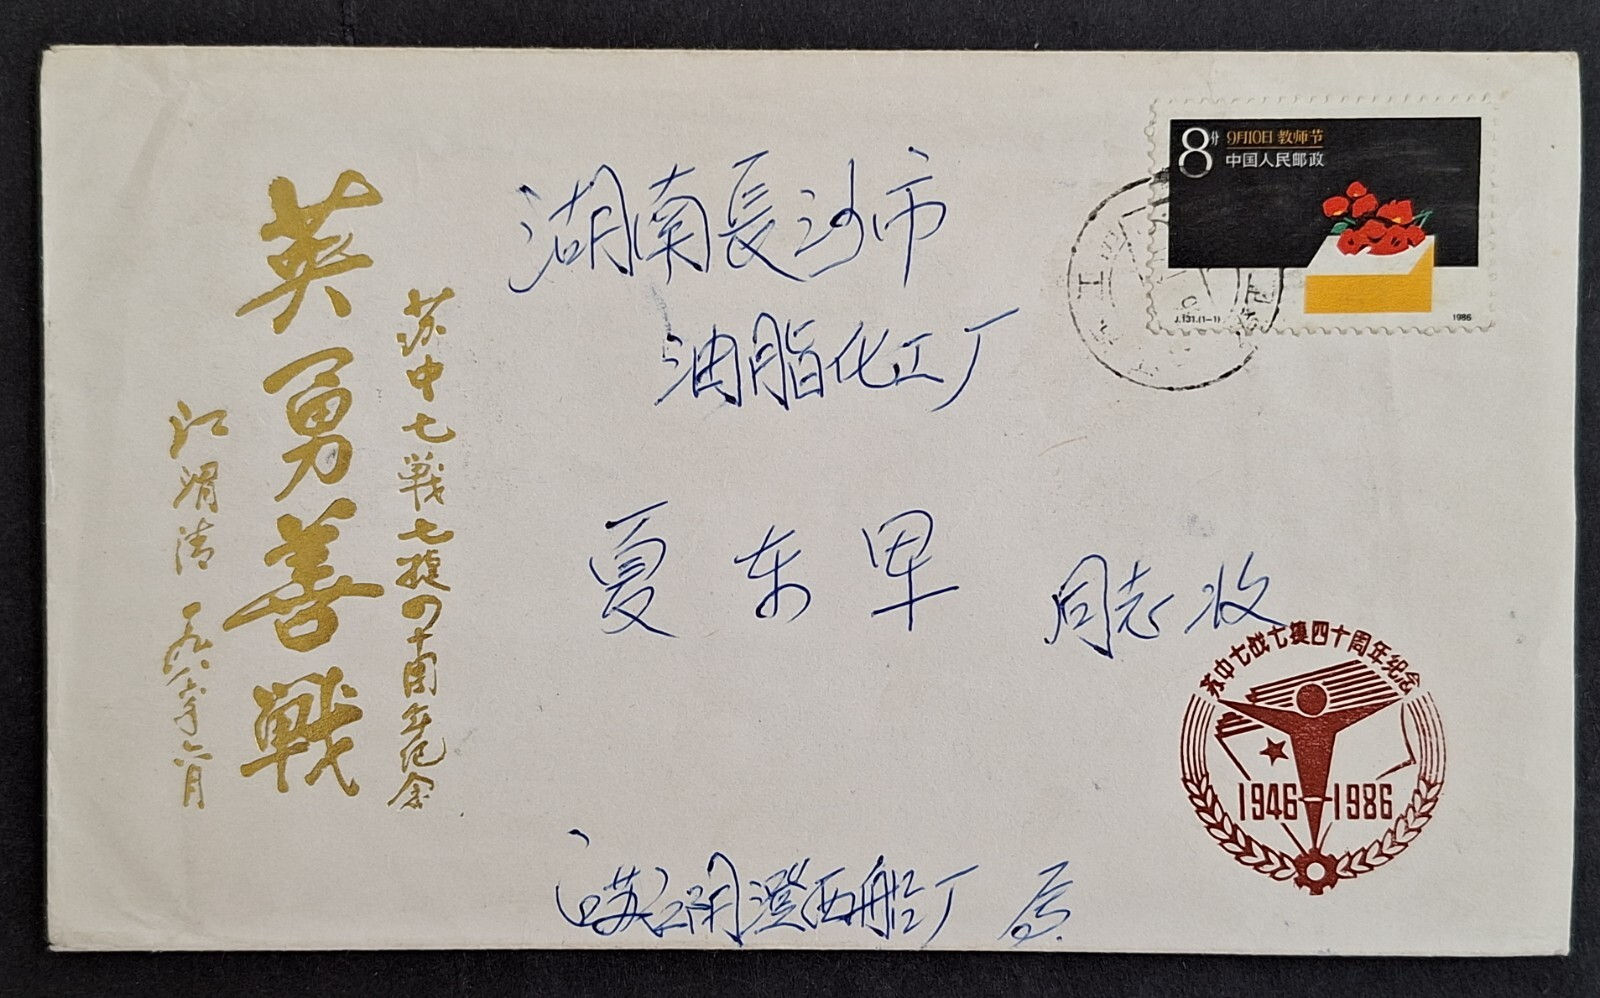 苏中七戰七捷四十周年纪念
英勇善戰
江渭清 一九八六年六月
8分
9月10日 教师节
中国人民邮政
J.131.(1-1)
1986
湖南長沙市
油脂化工厂
夏东 同志收
苏中七战七捷四十周年纪念
1946-1986
江苏江阴澄西船厂